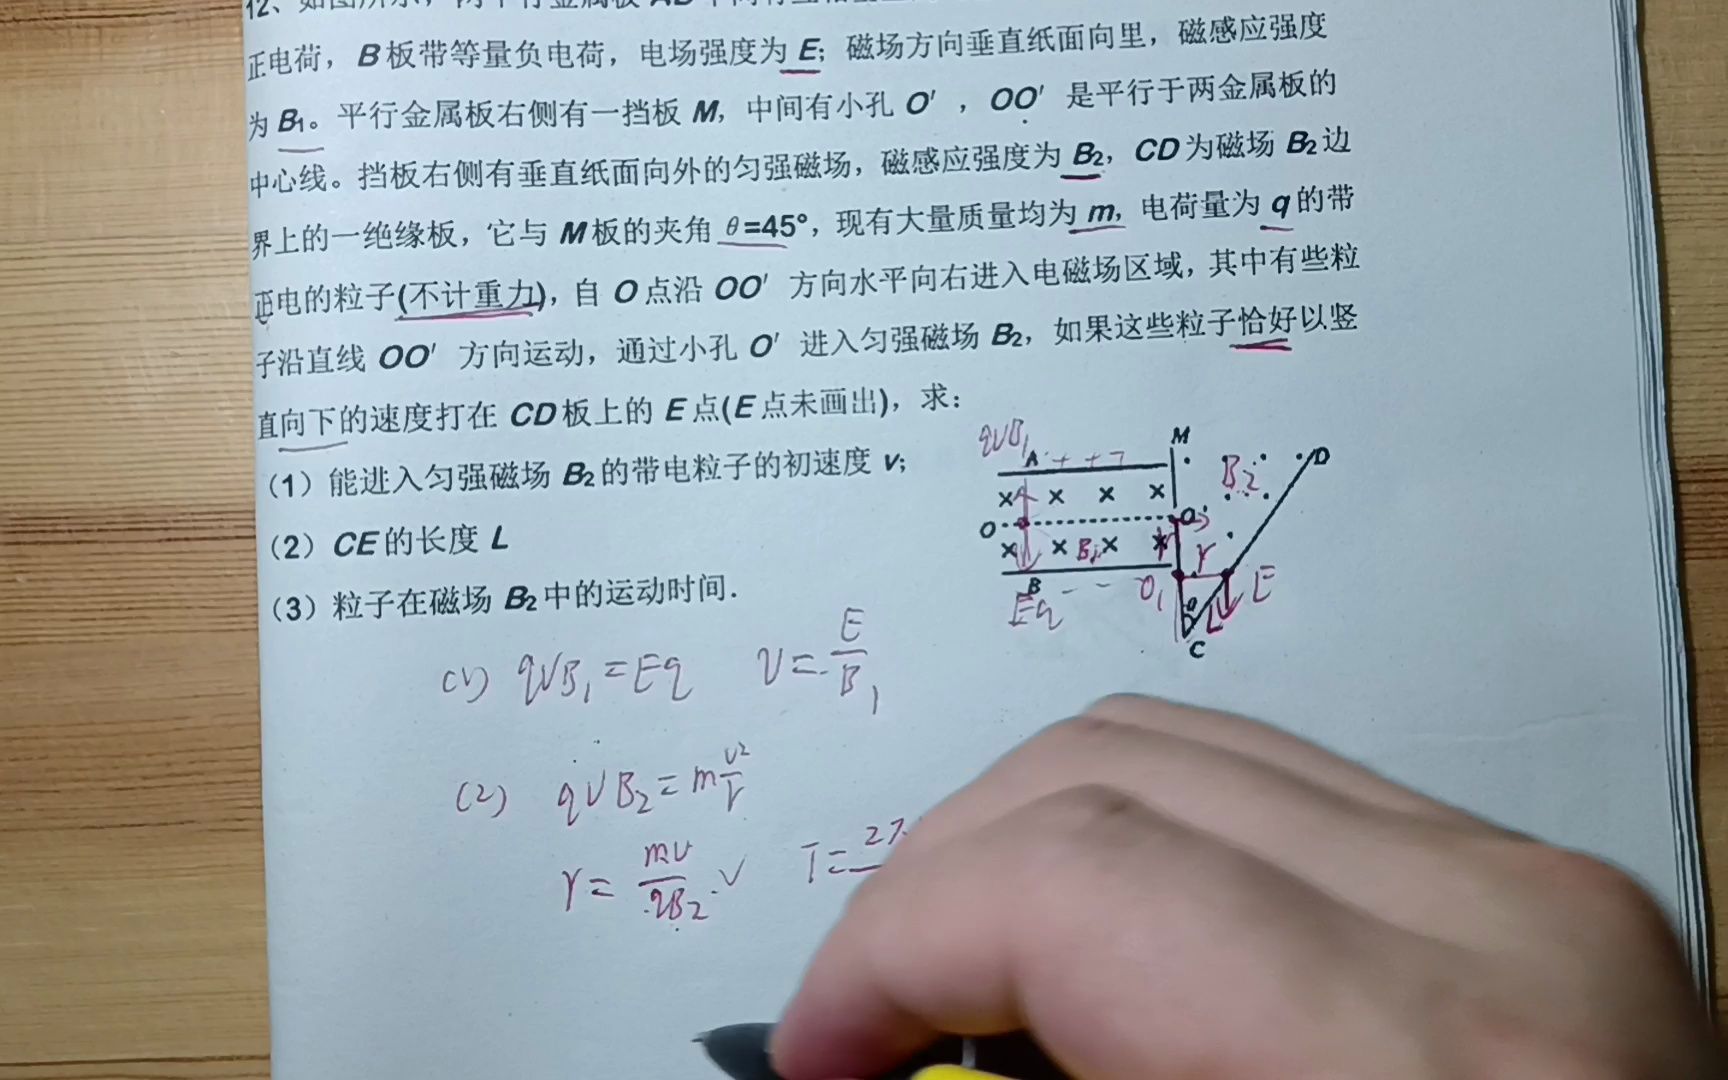 12、如图所示，两平行金属板 AB 中间有互相
正电荷，B 板带等量负电荷，电场强度为 E；磁场方向垂直纸面向里，磁感应强度
为 B₁。平行金属板右侧有一挡板 M，中间有小孔 O′，OO′ 是平行于两金属板的
中心线。挡板右侧有垂直纸面向外的匀强磁场，磁感应强度为 B₂，CD 为磁场 B₂ 边
界上的一绝缘板，它与 M 板的夹角 θ=45°，现有大量质量均为 m，电荷量为 q 的带
正电的粒子(不计重力)，自 O 点沿 OO′ 方向水平向右进入电磁场区域，其中有些粒
子沿直线 OO′ 方向运动，通过小孔 O′ 进入匀强磁场 B₂，如果这些粒子恰好以竖
直向下的速度打在 CD 板上的 E 点(E 点未画出)，求：
（1）能进入匀强磁场 B₂ 的带电粒子的初速度 v；
（2）CE 的长度 L
（3）粒子在磁场 B₂ 中的运动时间.
qVB₁
M
A + + +
D
B₂
× × × ×
O
O′
× × B₁ × ×
r
B - -
O₁
E
Eq
θ
L
C
(1) qVB₁=Eq V=E/B₁
(2) qVB₂=mV²/r
r=mV/qB₂ T=2π